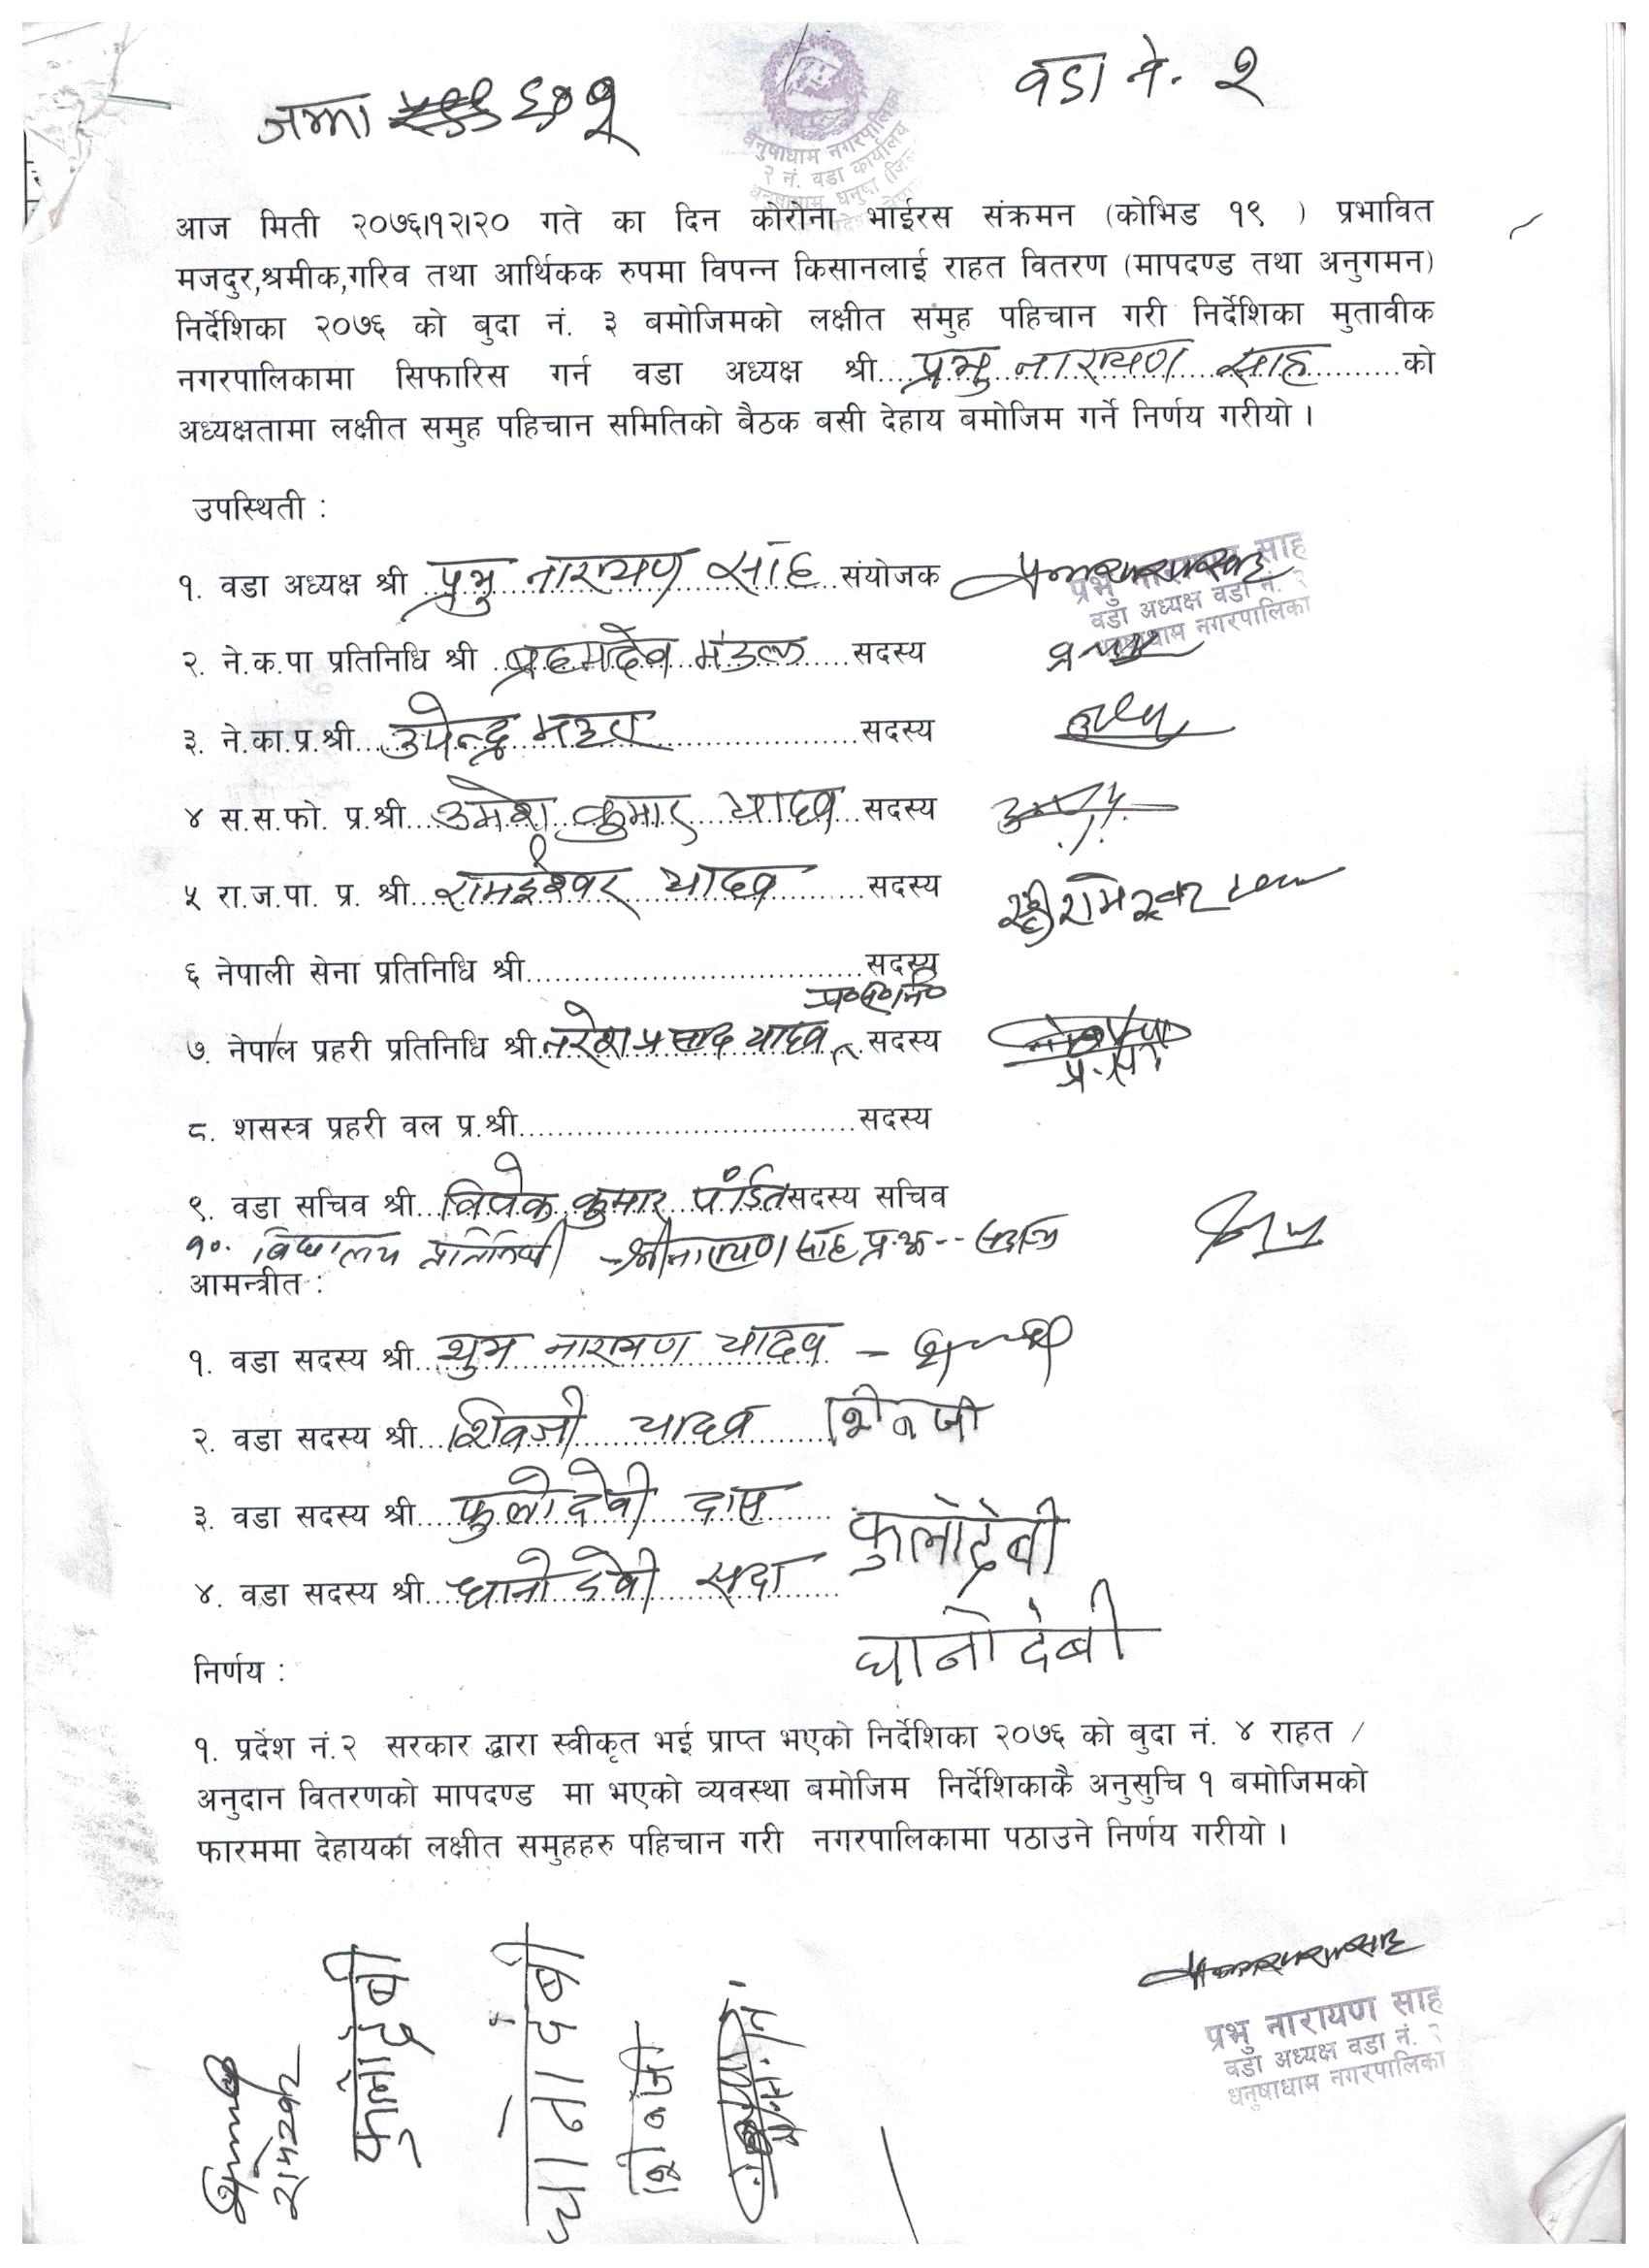 वडा नं. २
जम्मा
धनुषाधाम नगरपालिका
२ नं. वडा कार्यालय
धनुषाधाम, धनुषा
आज मिती २०७६।१२।२० गते का दिन कोरोना भाईरस संक्रमन (कोभिड १९ ) प्रभावित
मजदुर,श्रमीक,गरिव तथा आर्थिकक रुपमा विपन्न किसानलाई राहत वितरण (मापदण्ड तथा अनुगमन)
निर्देशिका २०७६ को बुदा नं. ३ बमोजिमको लक्षीत समुह पहिचान गरी निर्देशिका मुतावीक
नगरपालिकामा सिफारिस गर्न वडा अध्यक्ष श्री....प्रभु नारायण साह..........को
अध्यक्षतामा लक्षीत समुह पहिचान समितिको बैठक बसी देहाय बमोजिम गर्ने निर्णय गरीयो ।
उपस्थिती :
१. वडा अध्यक्ष श्री .प्रभु नारायण साह..संयोजक
प्रभु नारायण साह
वडा अध्यक्ष वडा नं. २
धनुषाधाम नगरपालिका
२. ने.क.पा प्रतिनिधि श्री ..ब्रहमदेव मंडल.....सदस्य
३. ने.का.प्र.श्री....उपेन्द्र मंडल....................सदस्य
४ स.स.फो. प्र.श्री....उमेश कुमार यादव...सदस्य
५ रा.ज.पा. प्र. श्री....रामईश्वर यादव........सदस्य
६ नेपाली सेना प्रतिनिधि श्री..................................सदस्य
७. नेपाल प्रहरी प्रतिनिधि श्री नरेश प्रसाद यादव..सदस्य
८. शसस्त्र प्रहरी वल प्र.श्री..................................सदस्य
९. वडा सचिव श्री...विवेक कुमार पंडित सदस्य सचिव
१०. विद्यालय प्रतिनिधी - श्रीनारायण साह प्र.अ. -- सदस्य
आमन्त्रीत :
१. वडा सदस्य श्री...शुभ नारायण यादव -
२. वडा सदस्य श्री....शिवजी यादव........शिवजी
३. वडा सदस्य श्री.....फुलो देवी दास...... फुलोदेवी
४. वडा सदस्य श्री....धानो देवी सदा......
धानो देबी
निर्णय :
१. प्रदेश नं.२ सरकार द्धारा स्वीकृत भई प्राप्त भएको निर्देशिका २०७६ को बुदा नं. ४ राहत /
अनुदान वितरणको मापदण्ड मा भएको व्यवस्था बमोजिम निर्देशिकाकै अनुसुचि १ बमोजिमको
फारममा देहायका लक्षीत समुहहरु पहिचान गरी नगरपालिकामा पठाउने निर्णय गरीयो ।
रामेश्वर
फुलोदेवी
धानो देबी
शिवजी
प्रभु नारायण साह
वडा अध्यक्ष वडा नं. २
धनुषाधाम नगरपालिका